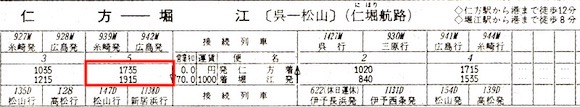 仁方――堀江 [呉―松山] (仁堀航路) ◇仁方駅から港まで徒歩12分
にほり
◇堀江駅から港まで徒歩8分
927M 928M 939M 942M 接続列車 1427 930M 941M 944M
糸崎発 広島発 糸崎発 広島発 呉行 三原行 広島行 糸崎行
3 5 営業キロ 運賃 便名 2 4
1035 1735 0.0 円 発仁方着 1020 1715
1215 1915 70.0 1000 着堀江発 840 1535
135D 128 147D 1138D 接続列車 622D(休日運休) 1130D 911D 139D
松山行 高松行 松山行 新居浜行 伊予長浜発 伊予西条発 松山発 高松発